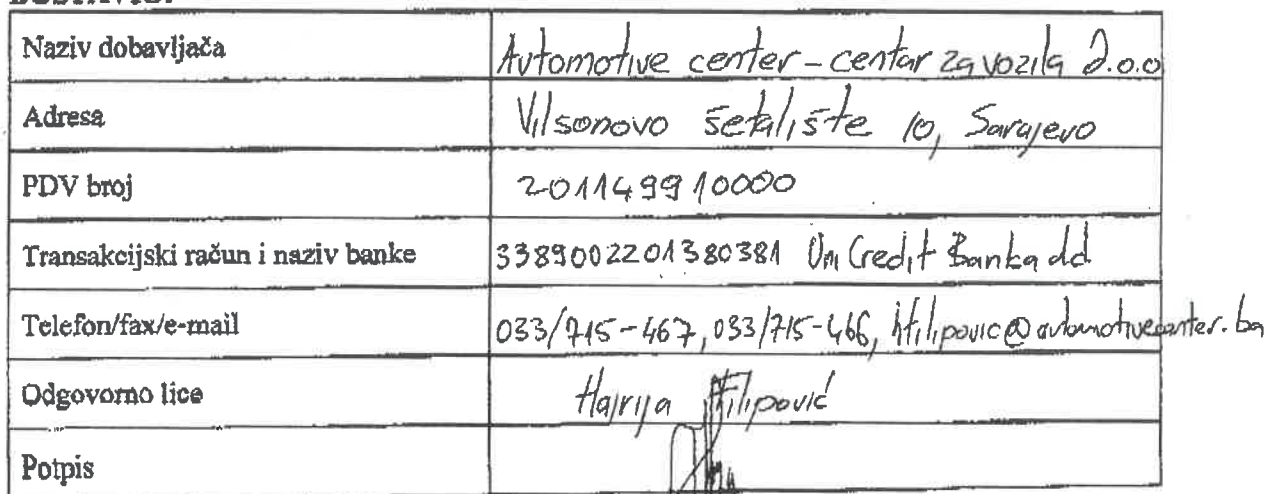 Naziv dobavljača Automotive center - centar za vozila d.o.o
Adresa Vilsonovo šetalište 10, Sarajevo
PDV broj 201149910000
Transakcijski račun i naziv banke 3389002201380381 UniCredit Banka dd
Telefon/fax/e-mail 033/715-467, 033/715-466, hfilipovic@automotivecenter.ba
Odgovorno lice Hajrija Filipović
Potpis